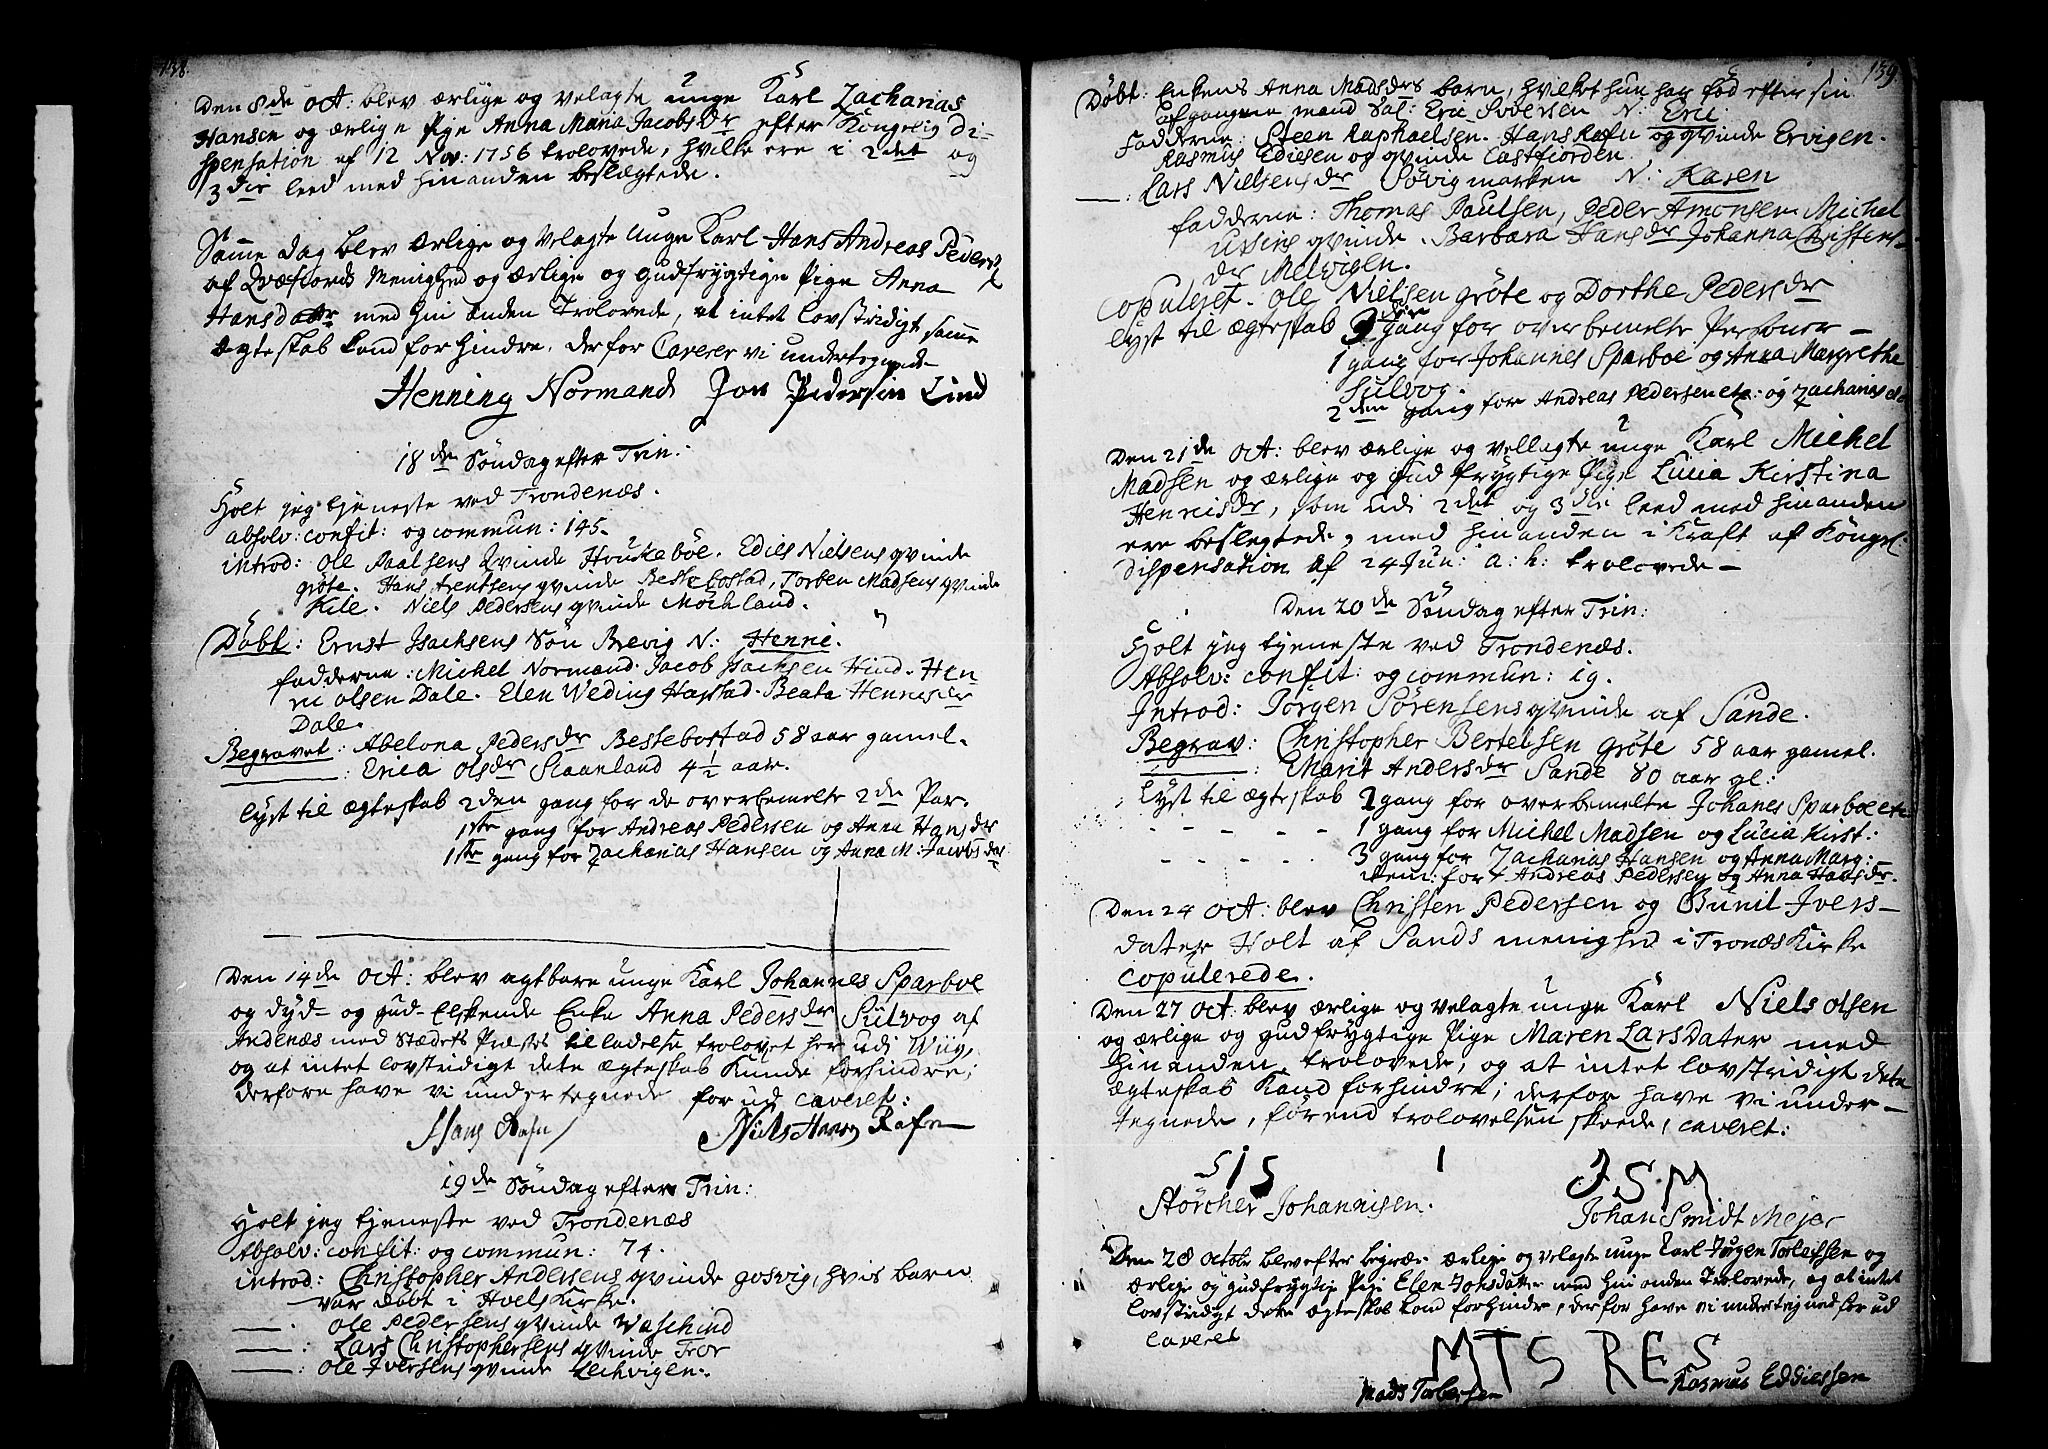 138.
Den 8de Oct: blev ærlige og velagte unge Karl Zacharias
Hansen og ærlige Pige Anna Maria Jacobsdr efter Kongelig Di-
spensation af 12 Nov: 1756 trolovede, hvilke ere i 2det og
3die leed med hinanden beslægtede.
Samme Dag blev ærlige og velagte unge Karl Hans Andreas Peders:
af Qvæfiords Menighed og ærlige og gudfrygtige Pige Anna
Hansdatr med hin anden Trolovede, at intet lovstridigt samme
ægteskab kand forhindre, derfor Caverer vi undertegnede
Henning Normand Jon Pedersen Lind
18de Søndag efter Trin:
Holt jeg tjeneste ved Trondenæs.
absolv: confit: og commun: 145.
introd: Ole Paalsens Qvinde Houkebøe. Edies Nielsens qvinde
grøte. Hans Arentsens qvinde Bestebostad, Torben Madsens qvinde
Kile. Niels Pedersens qvinde Møchland.
Døbt: Ernst Isachsens Søn Brevig N: Henric.
fadderne: Michel Normand. Jacob Isachsen Hind. Hen-
ric Olsen Dale. Elen Weding Harstad. Beata Henricsdr
Dale.
Begravet: Abelona Pedersdr Bestebostad 58 aar gamel.
: Erica Olsdr Slaanland 4½ aar.
lyst til ægteskab 2den gang for de overbemelte 2de Par.
1ste gang for Andreas Pedersen og Anna Hansdr
1ste gang for Zacharias Hansen og Anna M: Jacobsdr
Den 14de Oct: blev agtbare unge Karl Johannes Sparboe
og dyd- og gud-Elskende Enke Anna Pedersdr Sulvog af
Andenæs med Stædets Præstes tilladelse trolovet her udi Wiig,
og at intet lovstridigt dete ægteskab kunde forhindre;
derfore have vi undertegnede forud caveret:
Hans Rafn Niels Hansen Rafn
19de Søndag efter Trin:
Holt jeg tjeneste ved Trondenæs
Absolv: confit: og commun: 74.
introd: Christopher Andersens qvinde gosvig, hvis barn
var døbt i Hoels Kirke.
. Ole Pedersens qvinde Væschind
: Lars Christophersens qvinde Tror
: Ole Iversens qvinde Lechvigen.
139
Døbt: Enkens Anna Madsdrs barn, hvilket hun har fød efter sin
afgangne mand Sal: Eric Siversen N: Eric
Fadderne: Steen Raphaelsen. Hans Rafn og qvinde Ervigen.
Rasmus Ediesen og qvinde Castfiorden.
: Lars Nielsens dr Søvigmarken N: Karen
fadderne: Thomas Paulsen, Peder Amonsen Michel
Ussins qvinde. Barbara Hansdr Johanna Christens-
dr Melvigen.
Copuleret. Ole Nielsen grøte og Dorthe Pedersdr
lyst til ægteskab 3die gang for overbemelte Personer -
1 gang for Johannes Sparboe og Anna Margretha
Sulvog.
2den gang for Andreas Pedersen etc: og Zacharias etc
Den 21de Oct: blev ærlige og vellagte unge Karl Michel
Madsen og ærlige og gudfrygtige Pige Lucia Kirstina
Henricsdr, som udi 2det og 3die leed med hinanden
ere beslegtede, med hinanden i Kraft af Kongel:
Dispensation af 24 Jun: a: h: trolovede -
Den 20de Søndag efter Trin:
Holt jeg tjeneste ved Trondenæs.
Absolv: confit: og commun: 19.
Introd: Jørgen Sørensens qvinde af Sande.
Begrav: Christopher Bertelsen grøte 58 aar gamel.
: Marit Andersdr Sande 80 aar gl:
Lyst til ægteskab 2 gang for overbemelte Johanes Sparboe etc
- - - - - 1 gang for Michel Madsen og Lucia Kirst:
- - - - - 3 gang for Zacharias Hansen og Anna Marg:
item: for Andreas Pedersen og Anna Hansdr.
Den 24 Oct: blev Christen Pedersen og Gunil Ivers-
dater Holt af Sands menighed i Tronæs Kirke
copulerede.
Den 27 Oct: blev ærlige og velagte unge Karl Niels Olsen
og ærlige og gudfrygtige Pige Maren Larsdater med
hinanden trolovede, og at intet lovstridigt dete
ægteskab Kand forhindre; derfor have vi under-
tegnede, førend trolovelsen skeede, caveret:
SIS JSM
Störcher Johannisen. Johan Smidt Mejer
Den 28 octobr blev efter begiær. ærlige og velagte unge Karl Jørgen Torleifsen og
ærlige og gudfrygtig Pige Elen Johsdatter med hin anden Trolovede, og at intet
lovstridigt dete ægteskab kand forhindre, derfor have vi undertegned for ud
caveret
MTS RES
Mads Torbersen Rasmus Eddiessen